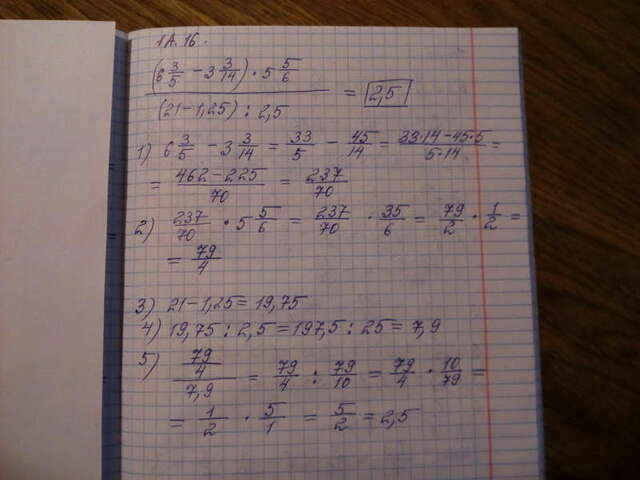 1А.16.
(6 3/5 − 3 3/14) · 5 5/6
(21 − 1,25) : 2,5 = 2,5
1) 6 3/5 − 3 3/14 = 33/5 − 45/14 = 33·14 − 45·5/5·14 =
= 462 − 225/70 = 237/70
2) 237/70 · 5 5/6 = 237/70 · 35/6 = 79/2 · 1/2 =
= 79/4
3) 21 − 1,25 = 19,75
4) 19,75 : 2,5 = 197,5 : 25 = 7,9
5) 79/4/7,9 = 79/4 : 79/10 = 79/4 · 10/79 =
= 1/2 · 5/1 = 5/2 = 2,5